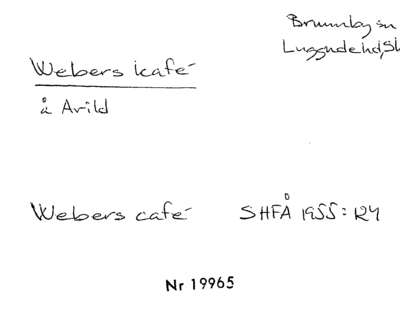 Brunnby sn
Luggude hd, Sk
Webers kafé
å Arild
Webers café SHFÅ 1955: 124
Nr 19965